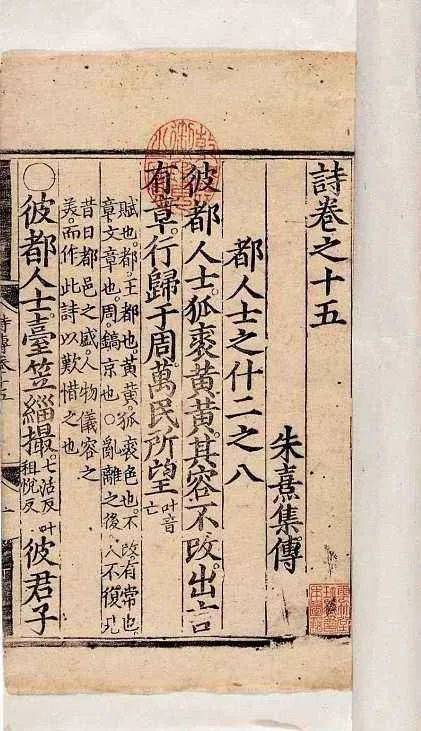 詩卷之十五
朱熹集傳
都人士之什二之八
彼都人士。狐裘黃黃。其容不改。出言
有章。行歸于周。萬民所望叶音亡
賦也。都。王都也。黃黃。狐裘色也。不改。有常也。
章。文章也。周。鎬京也。○亂離之後。人不復見
昔日都邑之盛。人物儀容之
美。而作此詩以歎惜之也
○彼都人士。臺笠緇撮。七活反叶租悅反彼君子